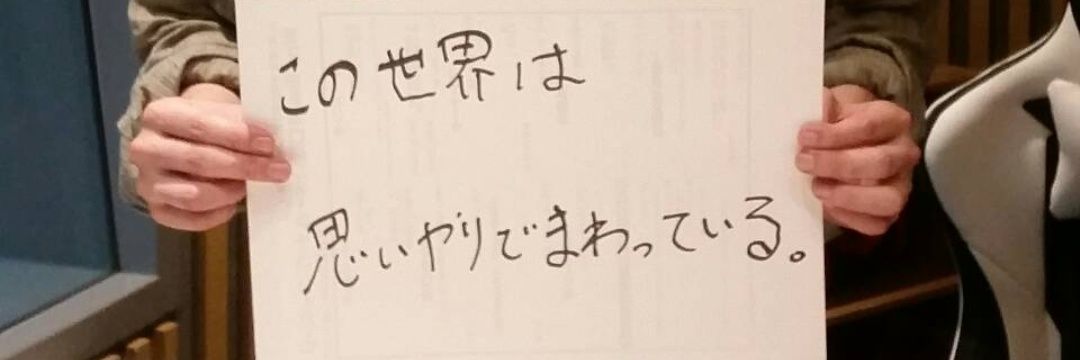 この世界は
思いやりでまわっている。